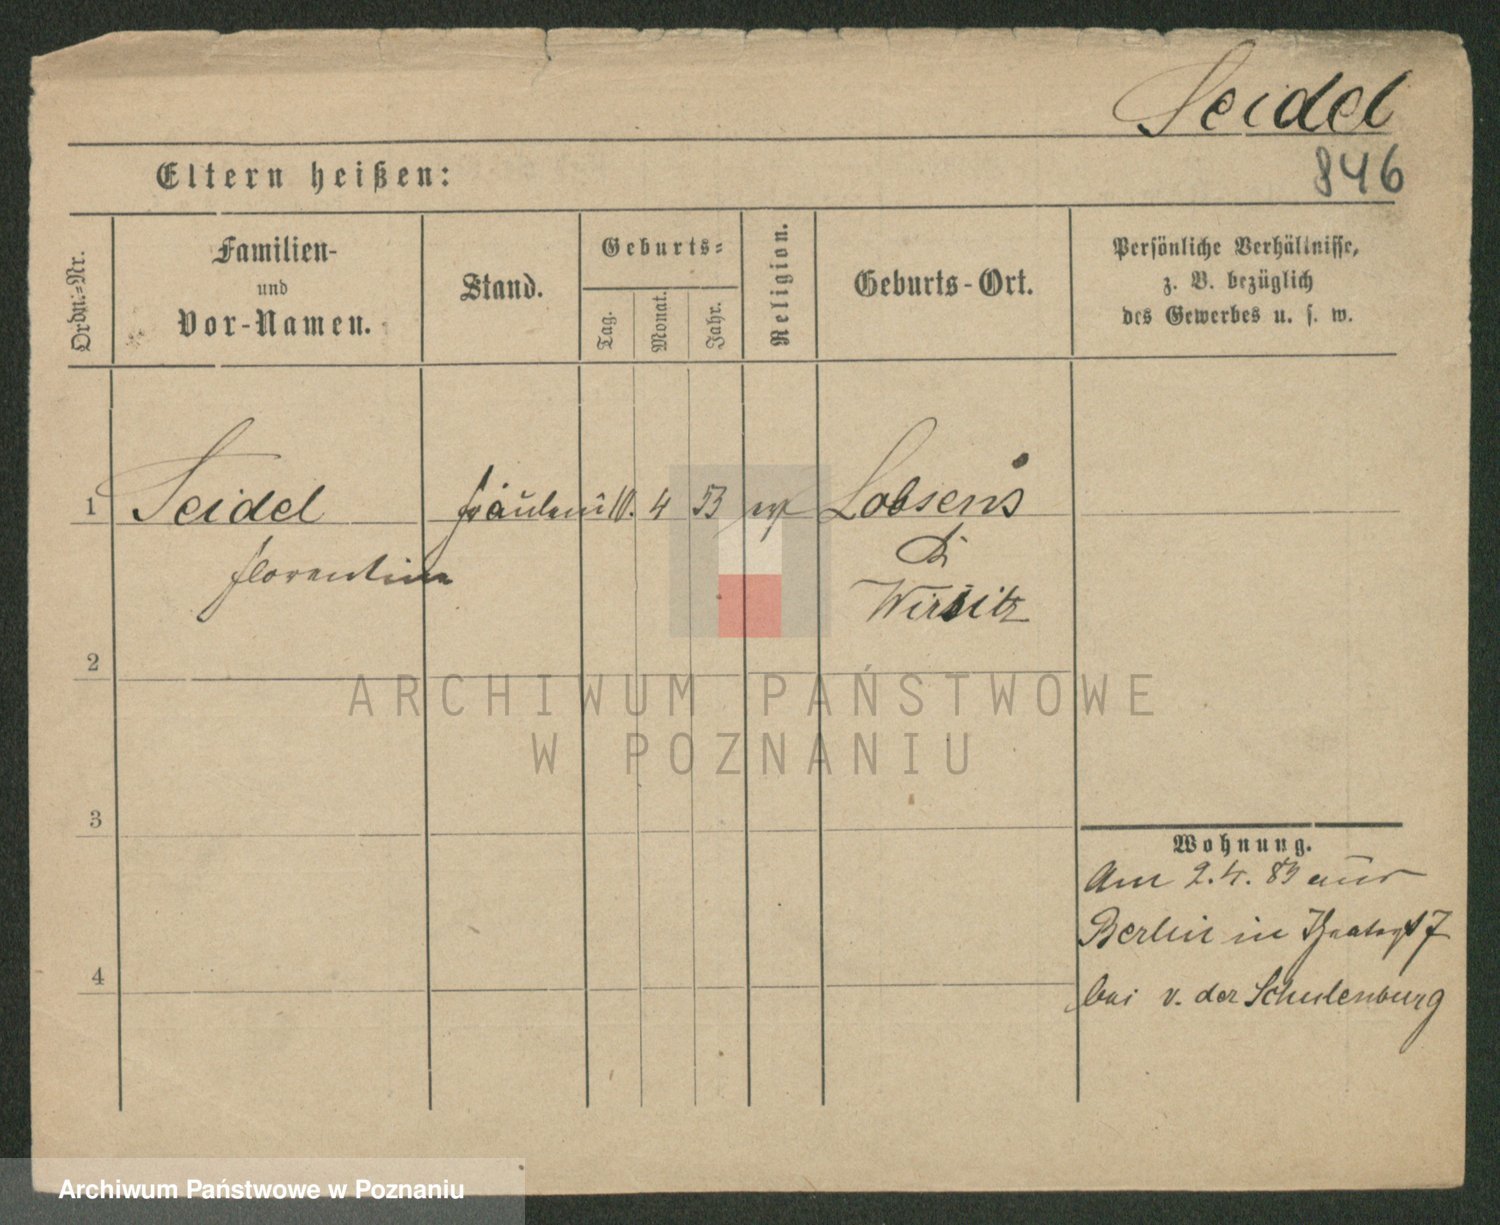 Seidel
846
Eltern heißen:
Ordn.=Nr.
Familien-
und
Vor-Namen.
Stand.
Geburts=
Tag.
Monat.
Jahr.
Religion.
Geburts-Ort.
Persönliche Verhältnisse,
z. B. bezüglich
des Gewerbes u. s. w.
1 Seidel Fräulein 10. 4 53 ev Lobsens
Florentine
Wirsitz
2
3
4
Wohnung.
Am 2. 4. 83 aus
Berlin in 7
bei v. der Schulenburg
ARCHIWUM PAŃSTWOWE
W POZNANIU
Archiwum Państwowe w Poznaniu